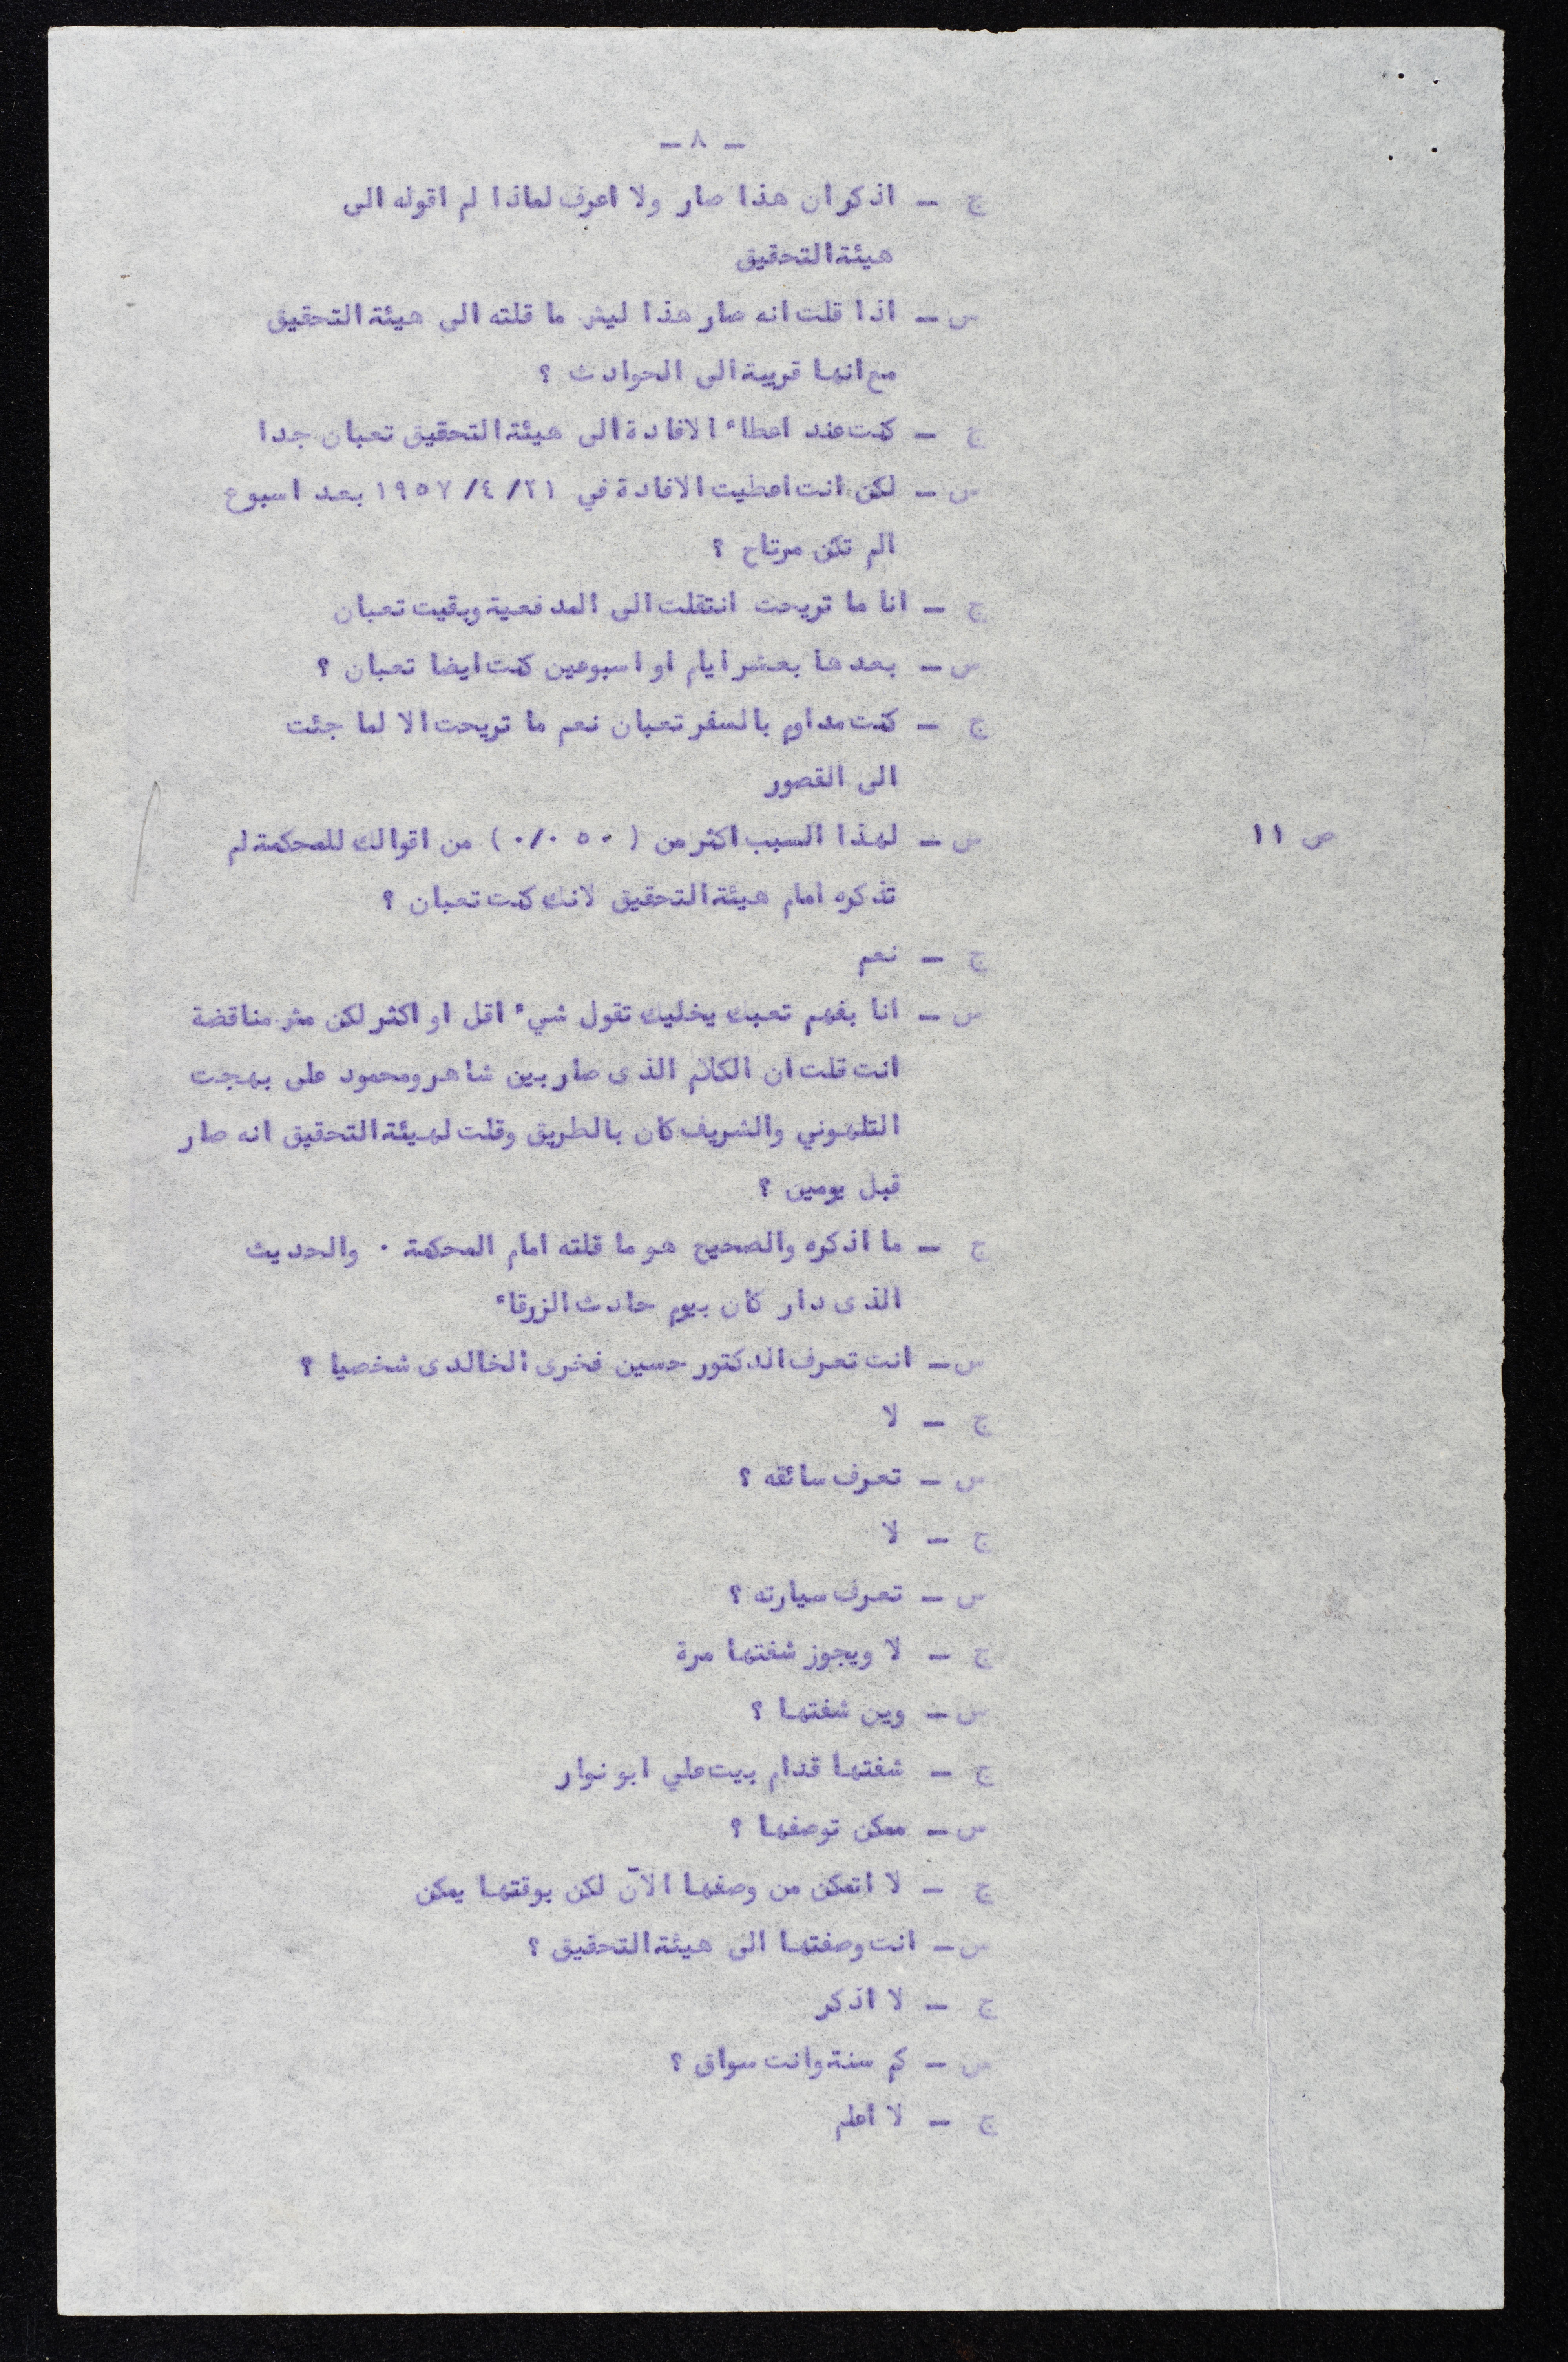 - ٨ -
ج - اذكر ان هذا صار ولا اعرف لماذا لم اقوله الى
هيئة التحقيق
س - اذا قلت انه صار هذا ليش ما قلته الى هيئة التحقيق
مع انها قريبة الى الحوادث ؟
ج - كنت عند اعطاء الافادة الى هيئة التحقيق تعبان جدا
س - لكن انت اعطيت الافادة في ٢١/ ٤/ ١٩٥٧ بعد اسبوع
الم تكن مرتاح ؟
ج - انا ما تريحت انتقلت الى المدفعية وبقيت تعبان
س - بعدها بعشر ايام او اسبوعين كنت ايضا تعبان ؟
ج - كنت مداوم بالسفر تعبان نعم ما تريحت الا لما جئت
الى القصور
ص ١١
س - لهذا السبب اكثر من ( ٥٠ ٠/٠ ) من اقوالك للمحكمة لم
تذكره امام هيئة التحقيق لانك كنت تعبان ؟
ج - نعم
س - انا بفهم تعبك يخليك تقول شيء اقل او اكثر لكن مش مناقضة
انت قلت ان الكلام الذى صار بين شاهر ومحمود على بهجت
التلهوني والشريف كان بالطريق وقلت لهيئة التحقيق انه صار
قبل يومين ؟
ج - ما اذكره والصحيح هو ما قلته امام المحكمة ٠ والحديث
الذى دار كان بيوم حادث الزرقاء
س - انت تعرف الدكتور حسين فخرى الخالدى شخصيا ؟
ج - لا
س - تعرف سائقه ؟
ج - لا
س - تعرف سيارته ؟
ج - لا ويجوز شفتها مرة
س - وين شفتها ؟
ج - شفتها قدام بيت علي ابو نوار
س - ممكن توصفها ؟
ج - لا اتمكن من وصفها الآن لكن بوقتها يمكن
س - انت وصفتها الى هيئة التحقيق ؟
ج - لا اذكر
س - كم سنة وانت سواق ؟
ج - لا اعلم